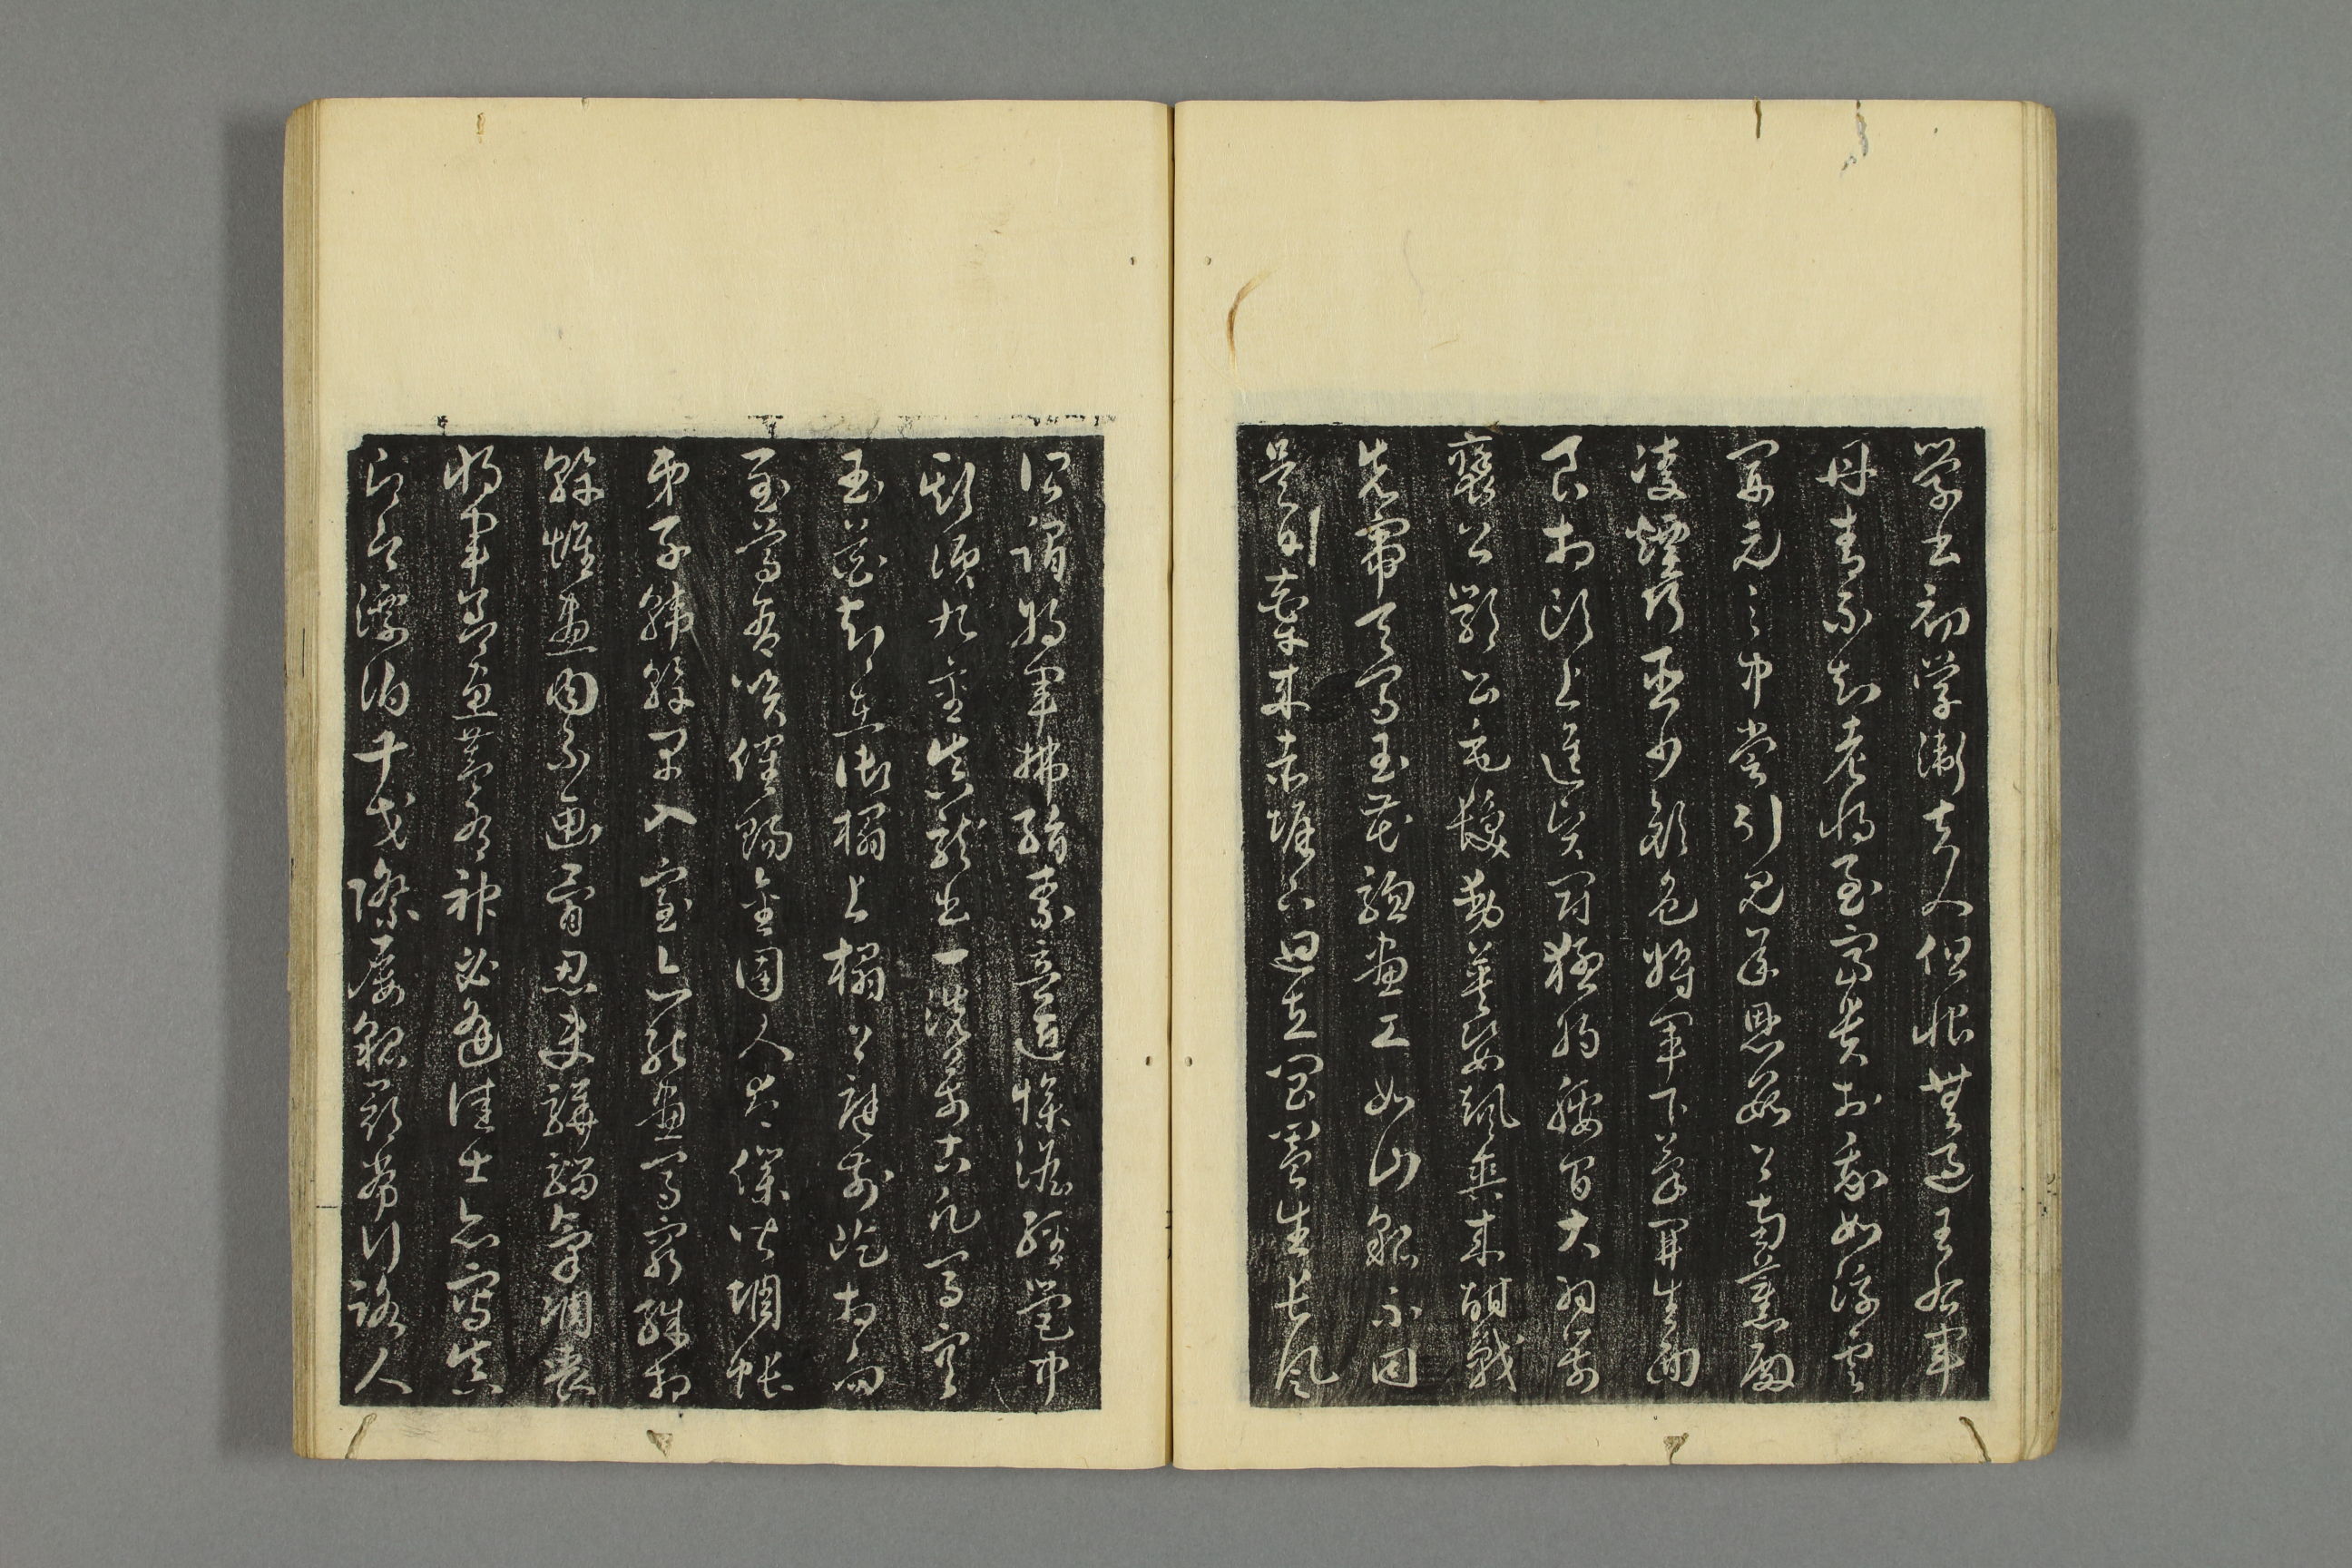 學書初學衛夫人但恨無過王右軍
丹青不知老將至富貴於我如浮雲
開元之中嘗引見承恩數上南薰殿
凌煙功臣少顏色將軍下筆開生面
良相頭上進賢冠猛將腰間大羽箭
褒公鄂公毛髮動英姿颯爽來酣戰
先帝天馬玉花驄畫工如山貌不同
是日牽來赤墀下迥立閶闔生長風
詔謂將軍拂絹素意匠慘澹經營中
斯須九重真龍出一洗萬古凡馬空
玉花却在御榻上榻上庭前屹相向
至尊含笑催賜金圉人太僕皆惆悵
弟子韓幹早入室亦能畫馬窮殊相
幹惟畫肉不畫骨忍使驊騮氣凋喪
將軍善畫蓋有神必逢佳士亦寫真
即今漂泊干戈際屢貌尋常行路人